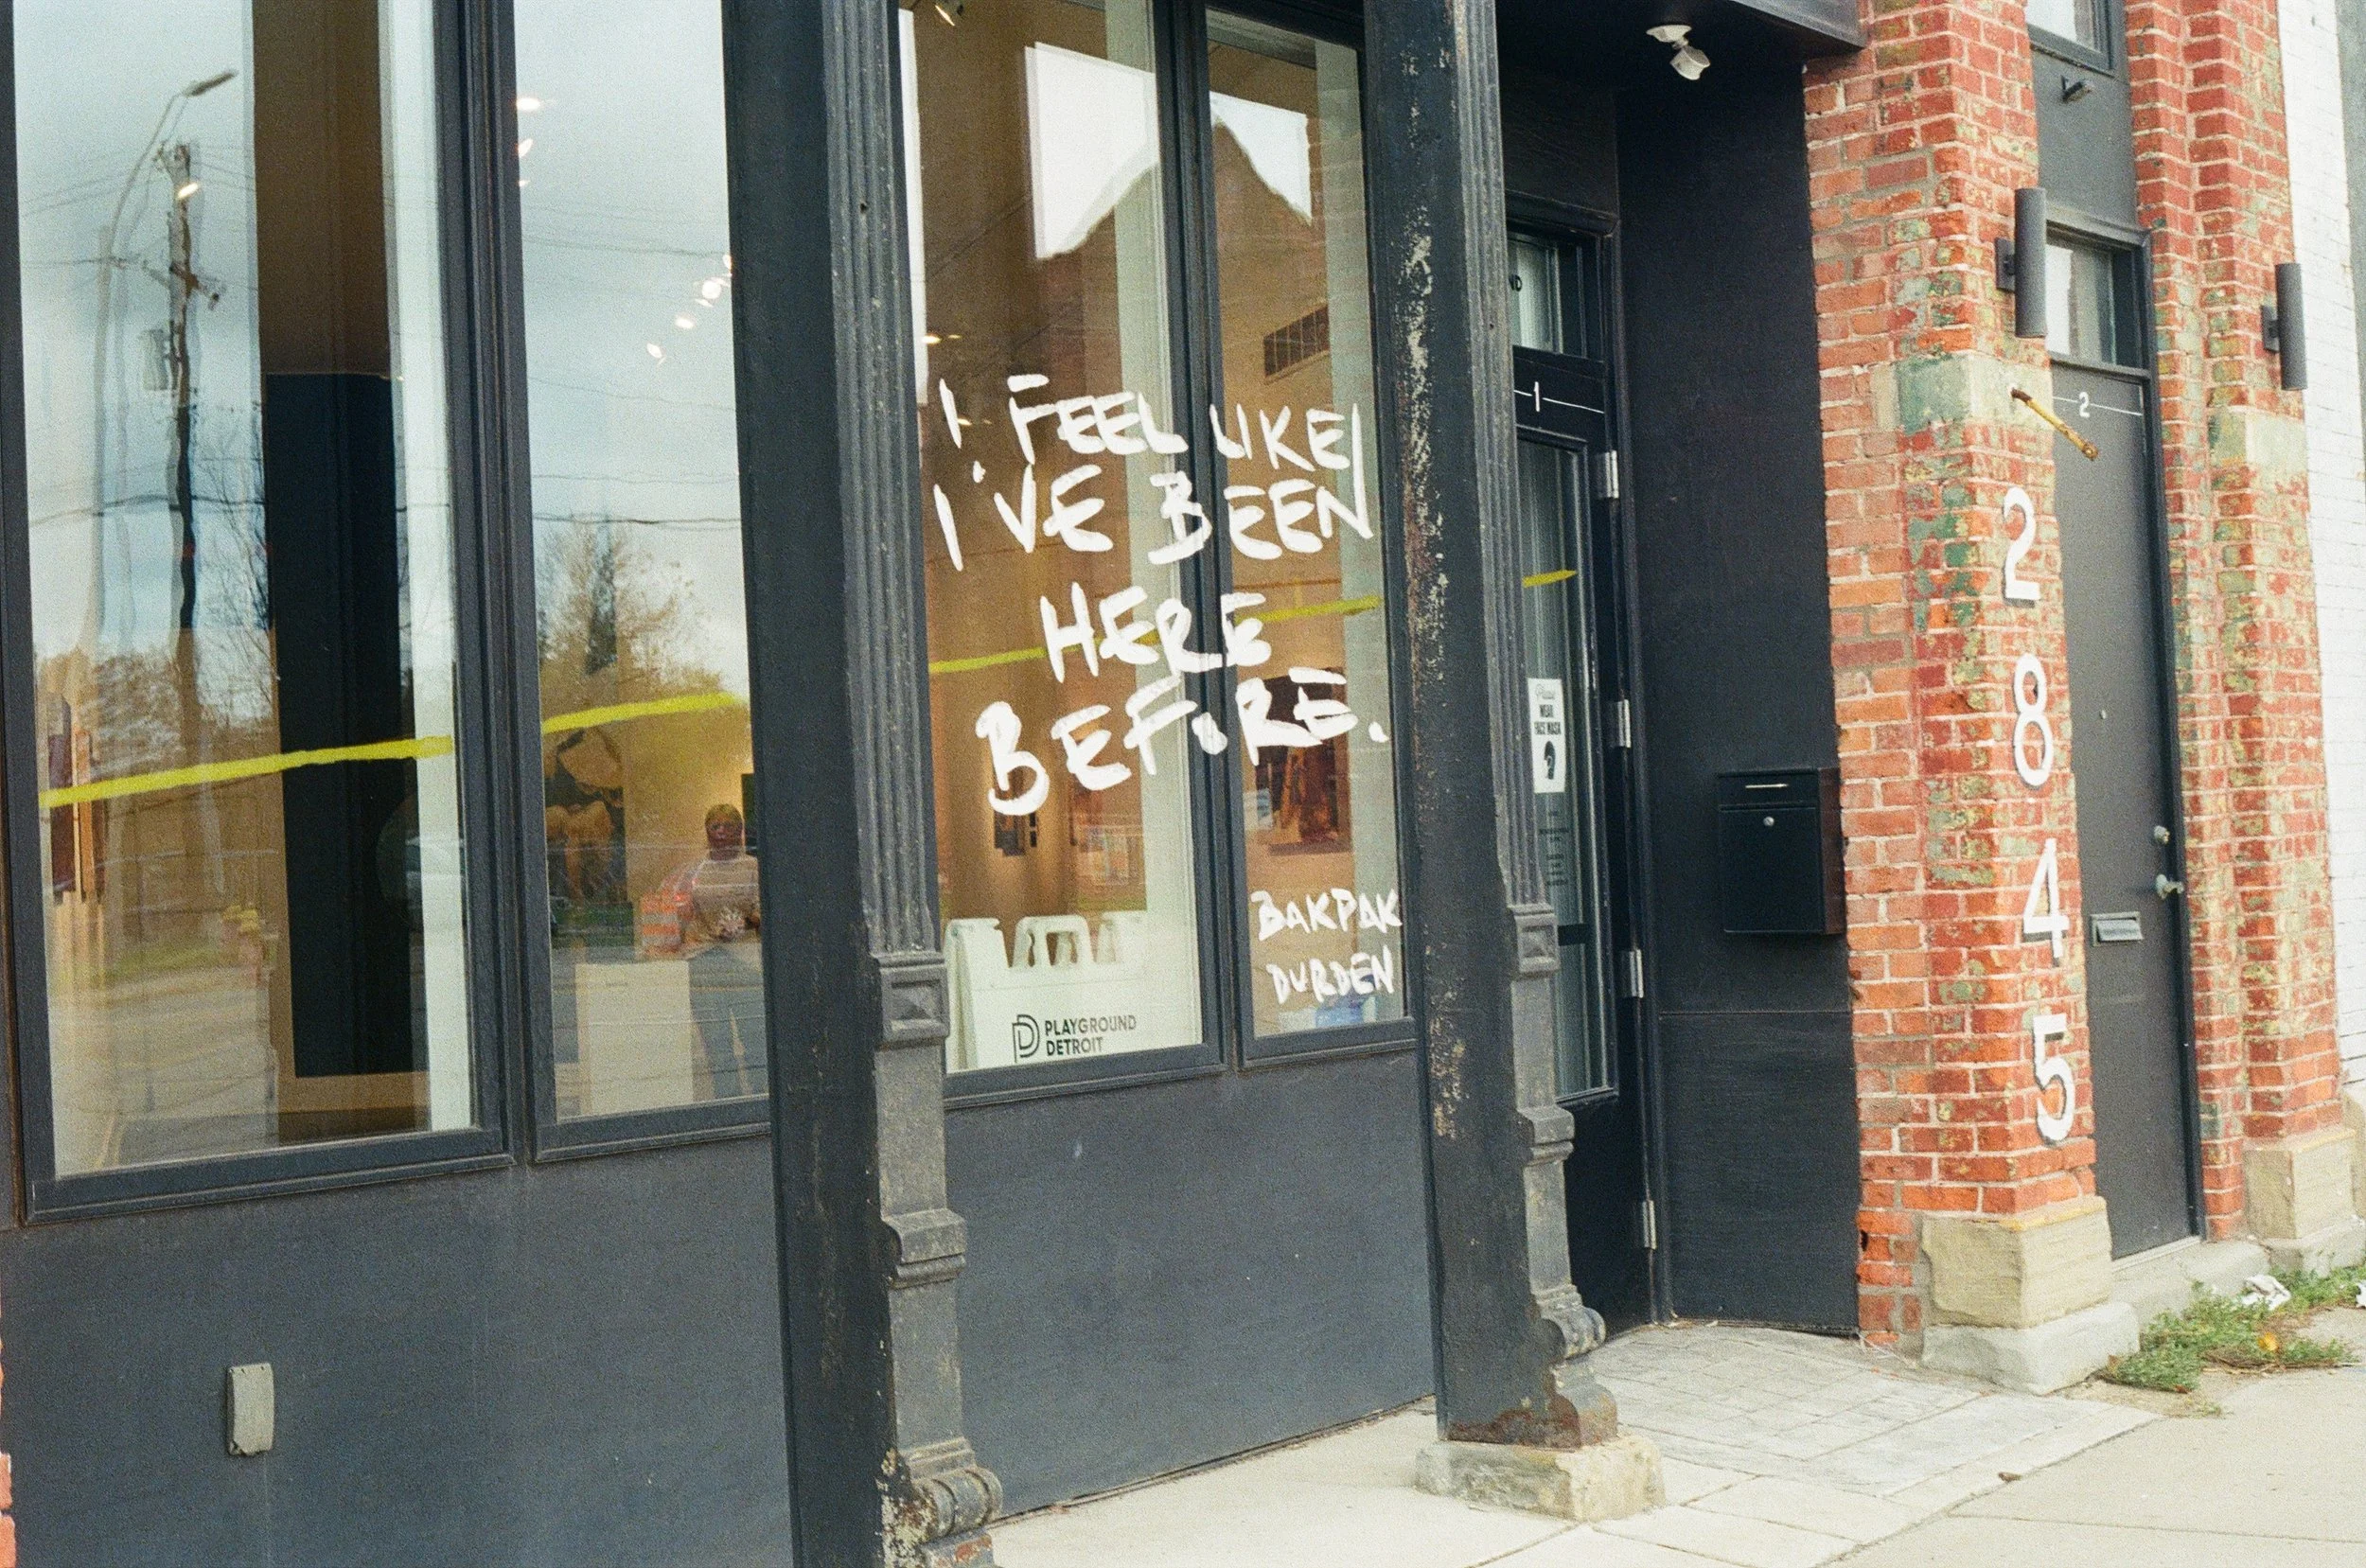 I FEEL LIKE
I'VE BEEN
HERE
BEFORE.
BAKPAK
DURDEN
PLAYGROUND
DETROIT
ND
1
Please
WEAR
FACE MASK
2
2
8
4
5